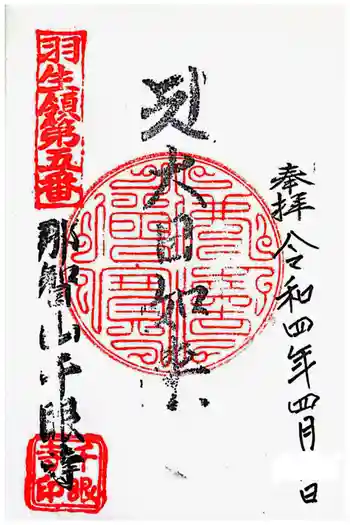 奉拝 令和四年四月 日
大日如来
羽生領第五番
那智山千眼寺
千眼寺印